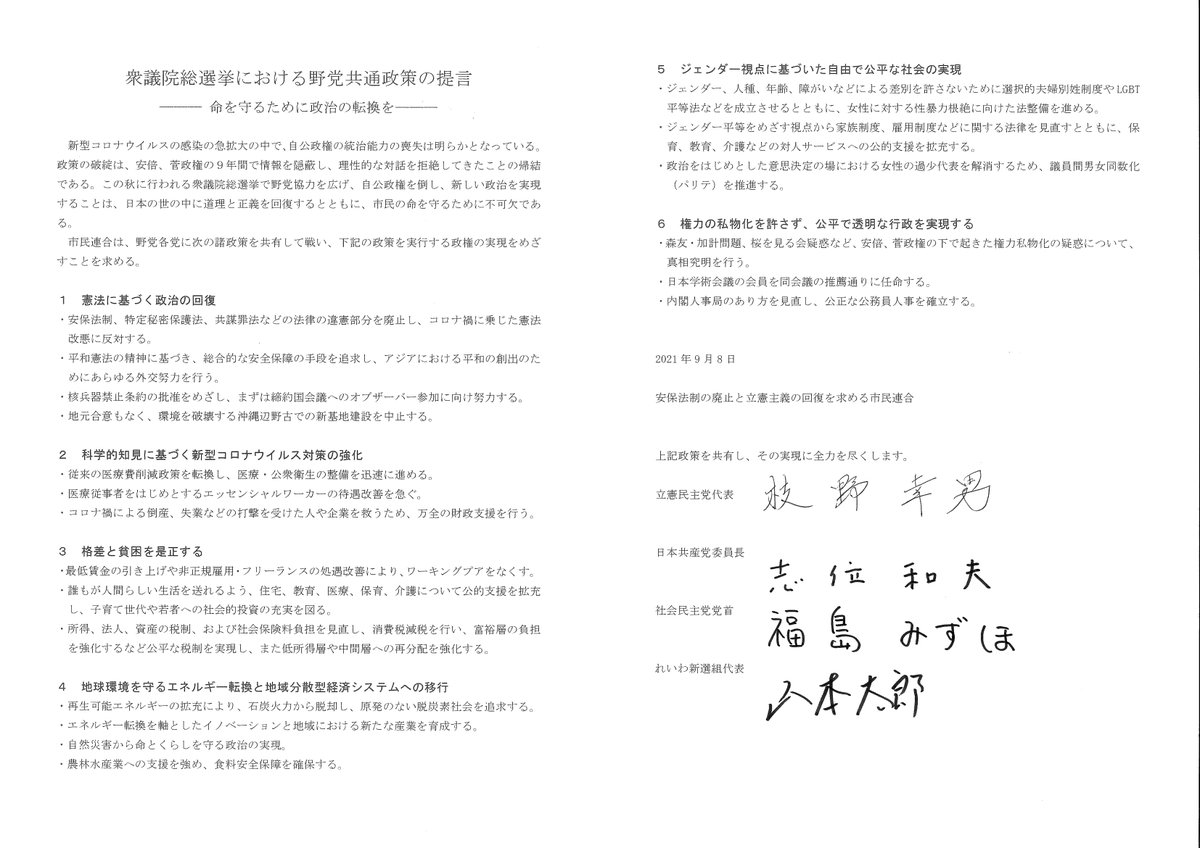 衆議院総選挙における野党共通政策の提言
――― 命を守るために政治の転換を―――
新型コロナウイルスの感染の急拡大の中で、自公政権の統治能力の喪失は明らかとなっている。
政策の破綻は、安倍、菅政権の９年間で情報を隠蔽し、理性的な対話を拒絶してきたことの帰結
である。この秋に行われる衆議院総選挙で野党協力を広げ、自公政権を倒し、新しい政治を実現
することは、日本の世の中に道理と正義を回復するとともに、市民の命を守るために不可欠であ
る。
市民連合は、野党各党に次の諸政策を共有して戦い、下記の政策を実行する政権の実現をめざ
すことを求める。
１　憲法に基づく政治の回復
・安保法制、特定秘密保護法、共謀罪法などの法律の違憲部分を廃止し、コロナ禍に乗じた憲法
改悪に反対する。
・平和憲法の精神に基づき、総合的な安全保障の手段を追求し、アジアにおける平和の創出のた
めにあらゆる外交努力を行う。
・核兵器禁止条約の批准をめざし、まずは締約国会議へのオブザーバー参加に向け努力する。
・地元合意もなく、環境を破壊する沖縄辺野古での新基地建設を中止する。
２　科学的知見に基づく新型コロナウイルス対策の強化
・従来の医療費削減政策を転換し、医療・公衆衛生の整備を迅速に進める。
・医療従事者をはじめとするエッセンシャルワーカーの待遇改善を急ぐ。
・コロナ禍による倒産、失業などの打撃を受けた人や企業を救うため、万全の財政支援を行う。
３　格差と貧困を是正する
・最低賃金の引き上げや非正規雇用・フリーランスの処遇改善により、ワーキングプアをなくす。
・誰もが人間らしい生活を送れるよう、住宅、教育、医療、保育、介護について公的支援を拡充
し、子育て世代や若者への社会的投資の充実を図る。
・所得、法人、資産の税制、および社会保険料負担を見直し、消費税減税を行い、富裕層の負担
を強化するなど公平な税制を実現し、また低所得層や中間層への再分配を強化する。
４　地球環境を守るエネルギー転換と地域分散型経済システムへの移行
・再生可能エネルギーの拡充により、石炭火力から脱却し、原発のない脱炭素社会を追求する。
・エネルギー転換を軸としたイノベーションと地域における新たな産業を育成する。
・自然災害から命とくらしを守る政治の実現。
・農林水産業への支援を強め、食料安全保障を確保する。
５　ジェンダー視点に基づいた自由で公平な社会の実現
・ジェンダー、人種、年齢、障がいなどによる差別を許さないために選択的夫婦別姓制度や LGBT
平等法などを成立させるとともに、女性に対する性暴力根絶に向けた法整備を進める。
・ジェンダー平等をめざす視点から家族制度、雇用制度などに関する法律を見直すとともに、保
育、教育、介護などの対人サービスへの公的支援を拡充する。
・政治をはじめとした意思決定の場における女性の過少代表を解消するため、議員間男女同数化
（パリテ）を推進する。
６　権力の私物化を許さず、公平で透明な行政を実現する
・森友・加計問題、桜を見る会疑惑など、安倍、菅政権の下で起きた権力私物化の疑惑について、
真相究明を行う。
・日本学術会議の会員を同会議の推薦通りに任命する。
・内閣人事局のあり方を見直し、公正な公務員人事を確立する。
2021 年 9 月 8 日
安保法制の廃止と立憲主義の回復を求める市民連合
上記政策を共有し、その実現に全力を尽くします。
立憲民主党代表 枝野幸男
日本共産党委員長
志位和夫
社会民主党党首 福島みずほ
れいわ新選組代表
山本太郎